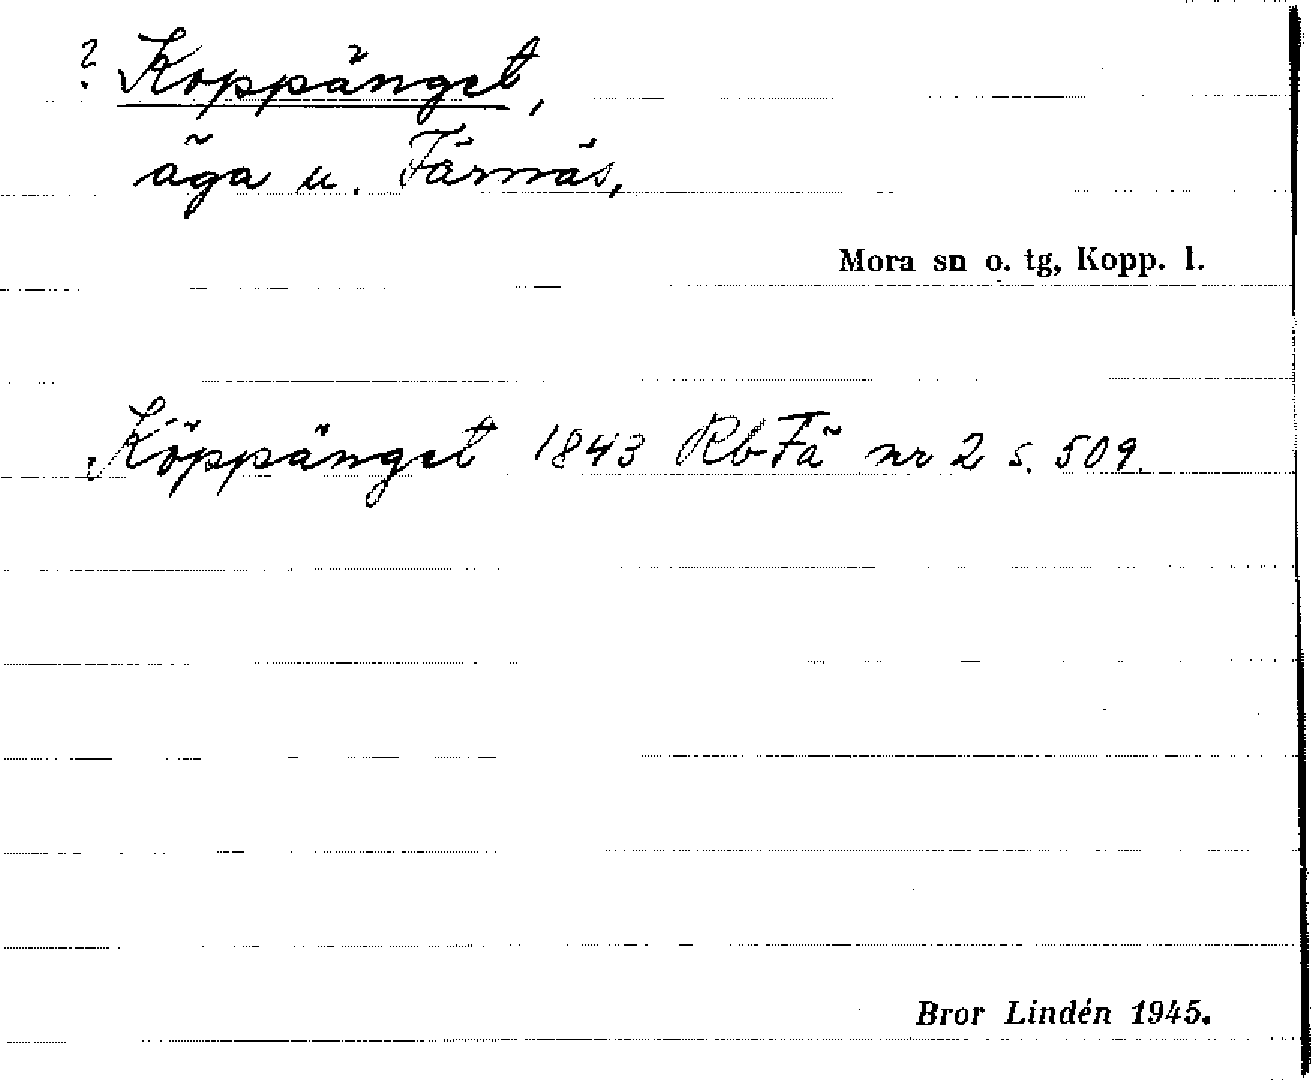 ? Koppänget,
äga u. Färnäs,
Mora sn o. tg, Kopp. l.
Köppänget 1843 Rb Fä nr 2 s. 509.
Bror Lindén 1945.